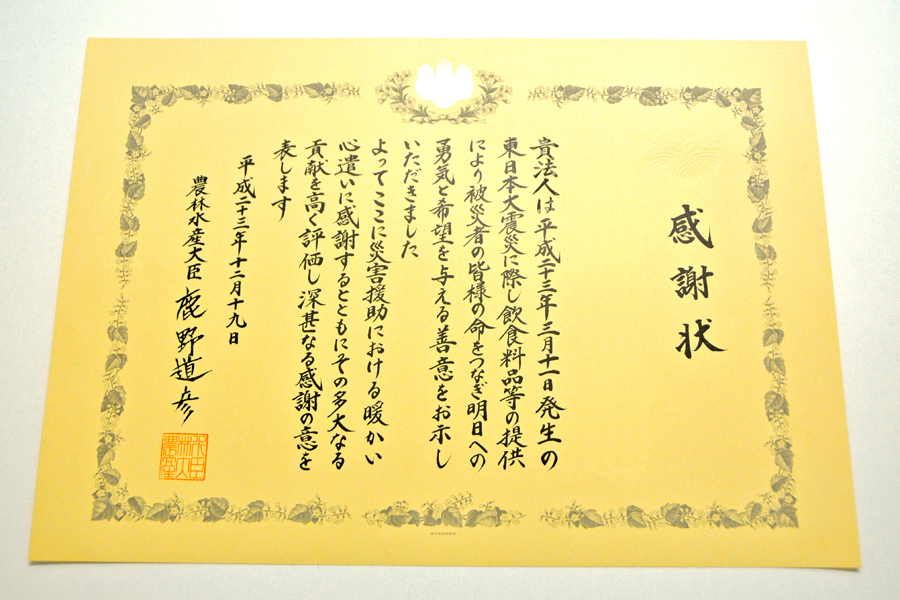 感謝状
貴法人は平成二十三年三月十一日発生の
東日本大震災に際し飲食料品等の提供
により被災者の皆様の命をつなぎ明日への
勇気と希望を与える善意をお示し
いただきました
よってここに災害援助における暖かい
心遣いに感謝するとともにその多大なる
貢献を高く評価し深甚なる感謝の意を
表します
平成二十三年十二月十九日
農林水産大臣 鹿野道彦